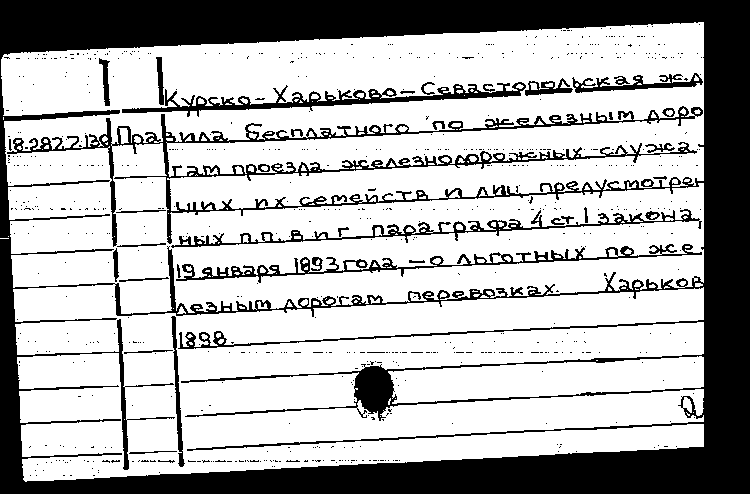 Курско-Харьково-Севастопольская ж.д
18.282.2.130 Правила бесплатного по железным доро
гам проезда железнодорожных служа-
щих, их семейств и лиц, предусмотрен
ных п.п. в и г параграфа 4 ст. 1 закона,
19 января 1893 года, — о льготных по же-
лезным дорогам перевозках. Харьков
1898.